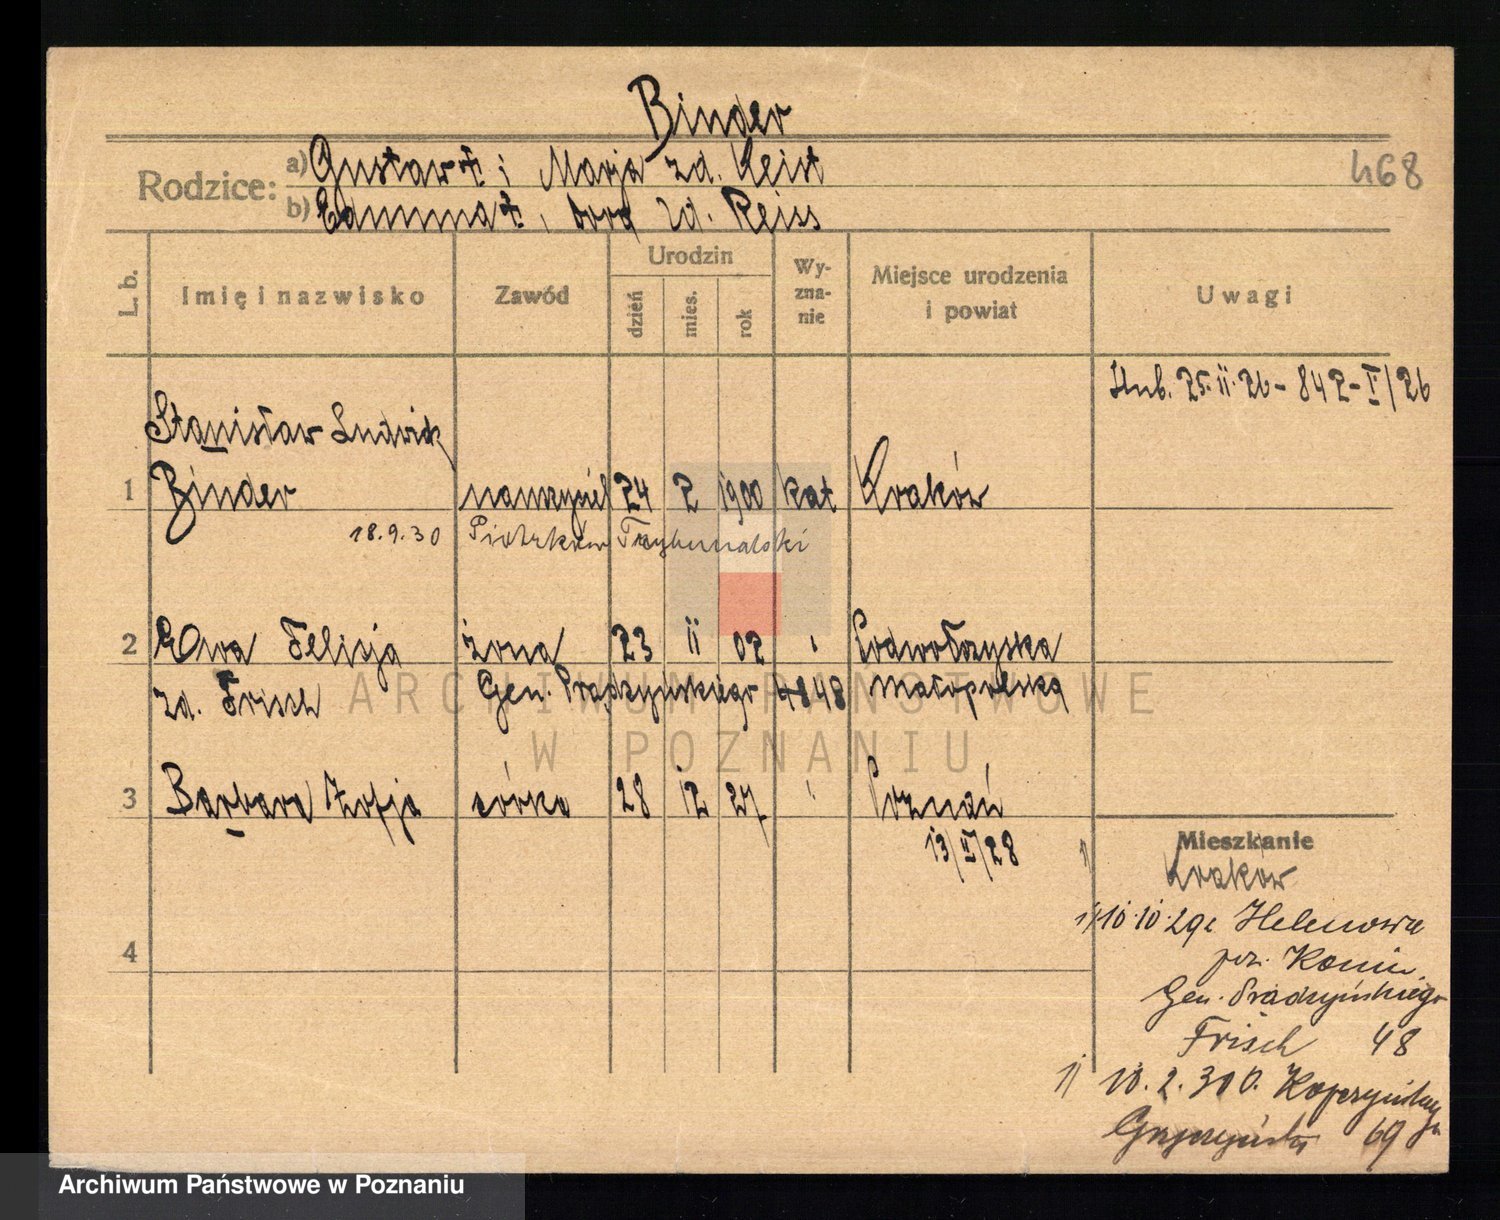 Binder
468
Rodzice: a) Gustaw † i Marja zd. Geist
b) Edmund † i Dora zd. Reiss
L. b.
Imię i nazwisko
Zawód
Urodzin
dzień
mies.
rok
Wy-
zna-
nie
Miejsce urodzenia
i powiat
Uwagi
ślub. 25.II.26 - 842 - I/26
Stanisław Ludwik
1 Binder nauczyciel 24 2 1900 kat Kraków
18.9.30 Piotrków Trybunalski
2 Ewa Felicja żona 23 II 02 Podwołoczyska
zd. Frisch Gen. Prądzyńskiego 48 Małopolska
3 Barbara Zofja córka 28 12 27 Poznań
13/II/28
Mieszkanie
Kraków
1) 10.10.29 Helenowo
Konin
Gen. Prądzyńskiego
Frisch 48
1) 10.2.30
69
4
ARCHIWUM PAŃSTWOWE
W POZNANIU
Archiwum Państwowe w Poznaniu